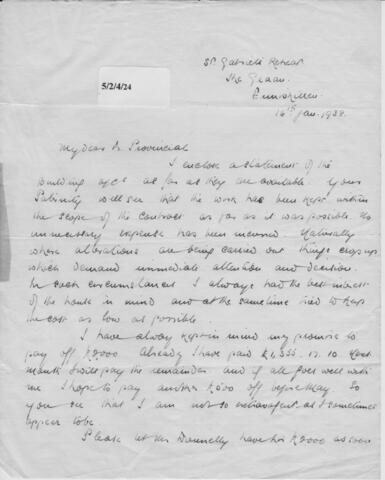 St. Gabriel's Retreat
The Graan.
Enniskillen.
5/2/4/24
16th Jan. 1938.
My dear Fr Provincial
I enclose a statement of the
building a/cs as far as they are available. Your
Paternity will see that the work has been kept within
the scope of the contract as far as it was possible. No
unnecessary expense has been incurred. Naturally
where alterations are being carried out things crop up
which demand immediate attention and decision.
In such circumstances I always had the best interest
of the house in mind and at the same time tried to keep
the cost as low as possible.
I have always kept in mind my promise to
pay off £2000 Already I have paid £1,355. 17. 10 Next
month I will pay the remainder and if all goes well with
me I hope to pay another £500 off before May So
you see that I am not so extravagant as I sometimes
appear to be.
Please let Mr Donnelly have his £2000 as soon